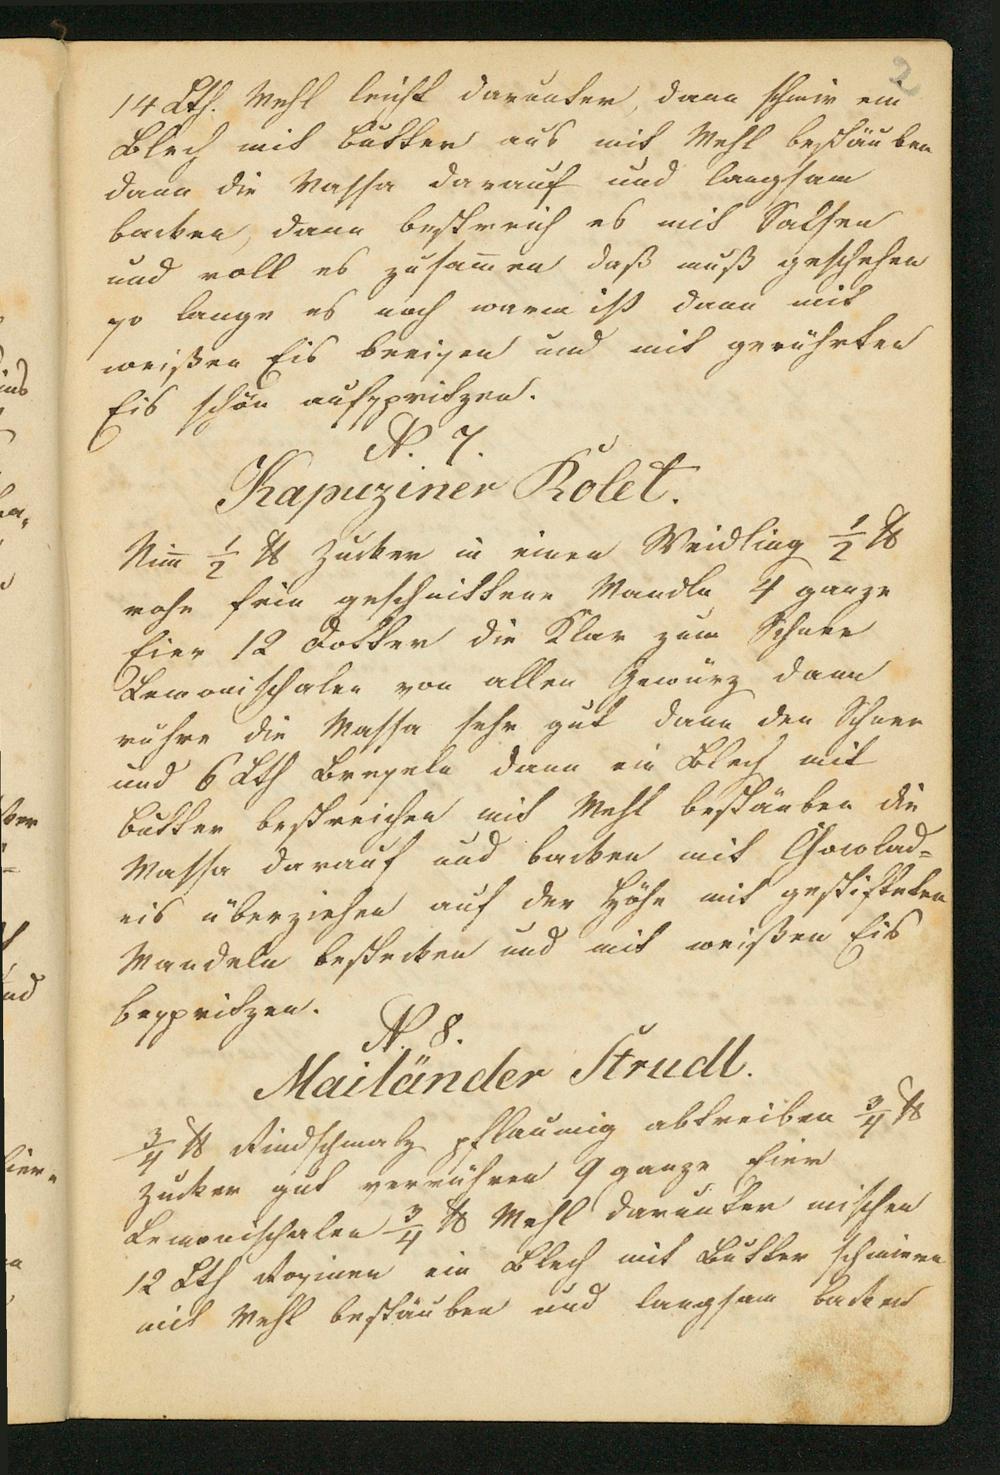 2
14 Lth. Mehl leicht darunter, dann schmir ein
Blech mit Butter aus mit Mehl bestäuben
dann die Massa darauf und langsam
backen, dann bestreich es mit Salsen
und roll es zusam̄en daß muß geschehen
so lange es noch warm ist dann mit
weißen Eis beeisen und mit gerührten
Eis schön aufspritzen.
N. 7.
Kapuziner Kolet.
Nim̄ ½ ℔ Zucker in einen Weidling ½ ℔
rohe fein geschnittene Mandln 4 ganze
Eier 12 Dotter die Klar zum Schnee
Lemonischalen von allen Gewürz dann
rühre die Massa sehr gut dann den Schnee
und 6 Lth Breseln dann ein Blech mit
Butter bestreichen mit Mehl bestäuben die
Massa darauf und backen mit Chocolad=
eis überziehen auf der Höhe mit gestifteten
Mandeln bestecken und mit weißen Eis
bespritzen.
N. 8.
Mailänder Strudl.
¾ ℔ Rindschmalz pflaumig abtreiben ¾ ℔
Zucker gut verrühren 9 ganze Eier
Lemonischalen ¾ ℔ Mehl darunter mischen
12 Lth Rosinen ein Blech mit Butter schmieren
mit Mehl bestäuben und langsam backen